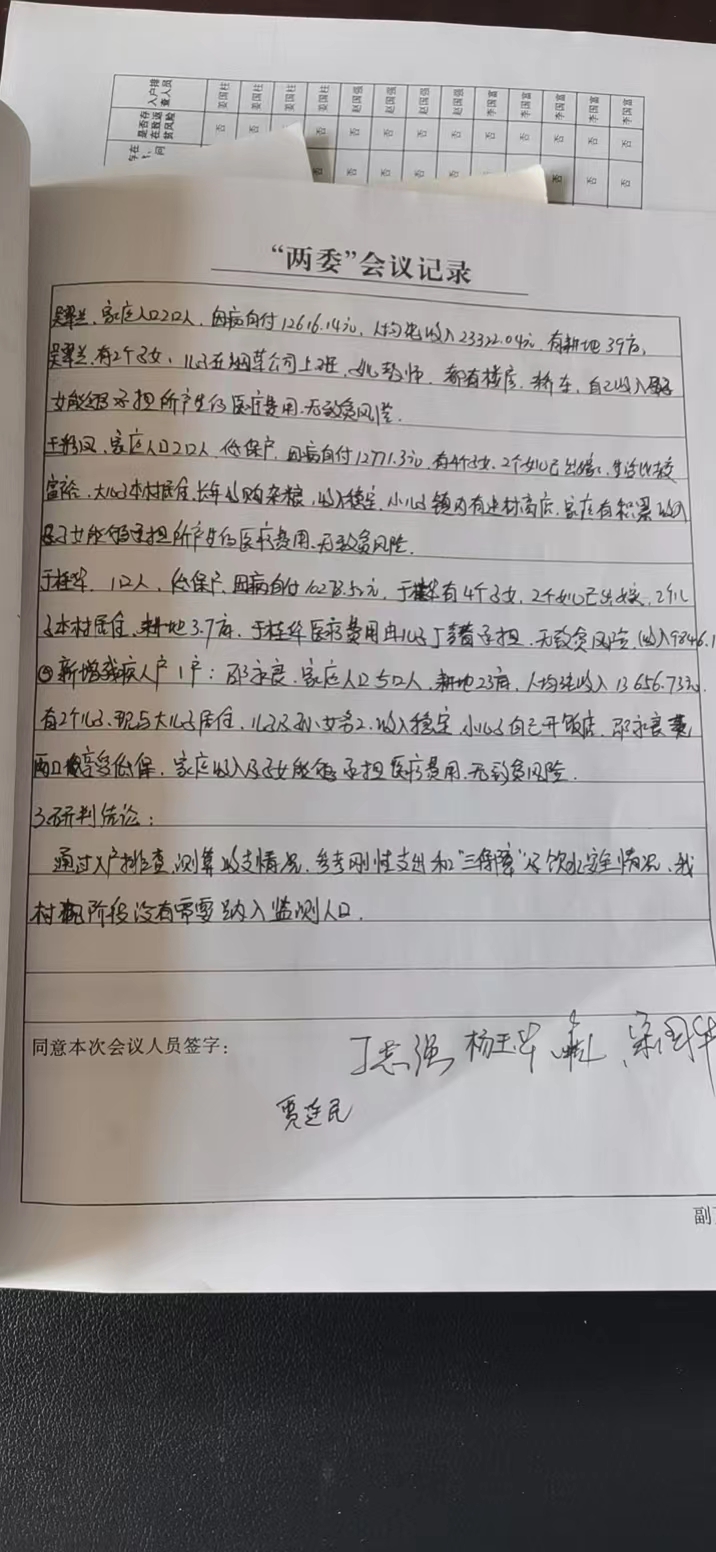 入户排查人员
是否存在致返贫风险
存在
问
姜国柱 姜国柱 姜国柱 姜国柱 赵国强 赵国强 赵国强 赵国强 李国富 李国富 李国富 李国富 李国富
否 否 否 否 否 否 否 否 否 否 否 否 否
否 否 否 否 否 否 否 否 否 否
“两委”会议记录
吴翠兰、家庭人口2口人，因病自付12616.14元，人均纯收入23322.04元，有耕地39亩，
吴翠兰有2个子女，儿子在烟草公司上班，女儿教师，都有楼房、轿车，自己收入及子
女能够承担所产生的医疗费用，无致贫风险．
家庭人口2口人，低保户，因病自付12771.3元，有4个子女，2个女儿已出嫁，生活比较
富裕，大儿子本村居住，长年收购杂粮，收入稳定，小儿子镇内有建材商店，家庭有积累收入
及子女能够承担所产生的医疗费用，无致贫风险．
于桂华，1口人，低保户，因病自付10278.5元，于桂华有4个子女，2个女儿已出嫁，2个儿
子本村居住，耕地3.7亩，于桂华医疗费用由儿子丁承担，无致贫风险（收入9846.1
新增残疾人户1户：邵永良，家庭人口5口人，耕地23亩，人均纯收入13656.73元，
有2个儿子，现与大儿子居住，儿子及孙女务工，收入稳定，小儿子自己开饭店，邵永良
两口享受低保，家庭收入及子女能够承担医疗费用，无致贫风险．
3、研判结论：
通过入户排查，测算收支情况，参考刚性支出和“三保障”及饮水安全情况，我
村现阶段没有需要纳入监测人口．
同意本次会议人员签字：
丁志强 杨玉华
贾廷民
副